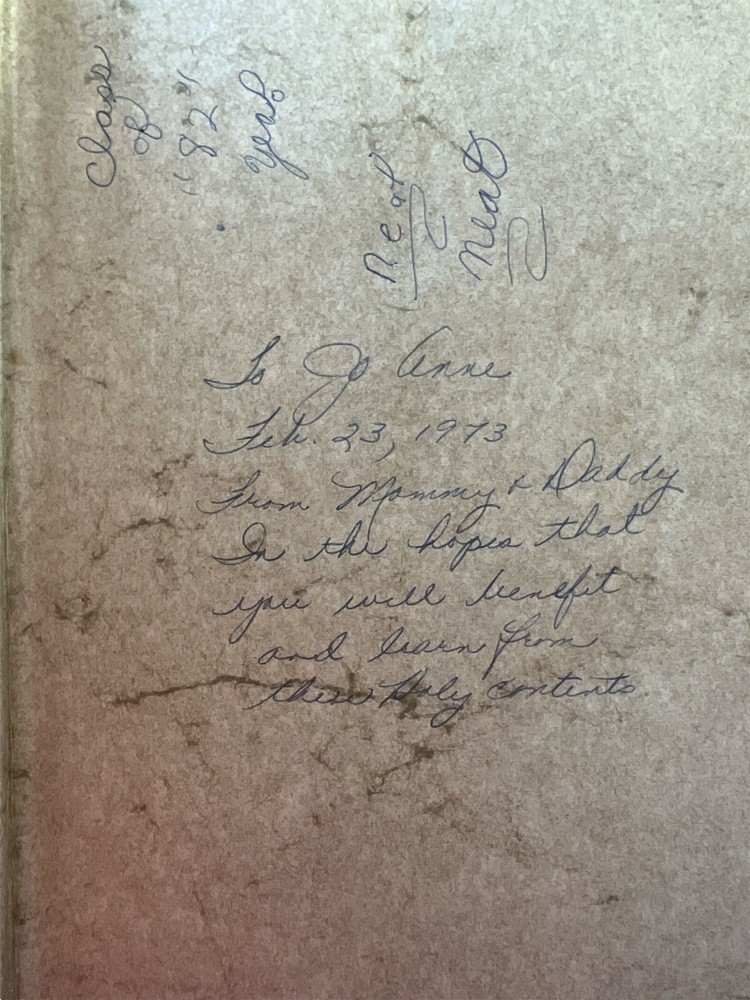 Class
of
"82"
Yeah
Neat
Neat
To Jo Anne
Feb. 23, 1973
From Mommy & Daddy
In the hopes that
you will benefit
and learn from
these Holy contents